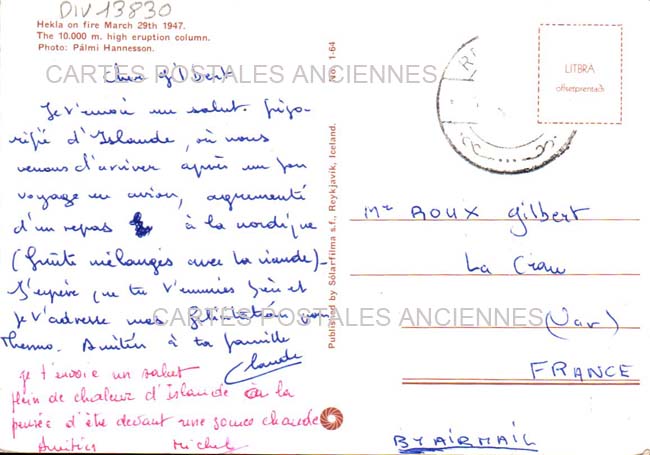 DIV 13830
Hekla on fire March 29th 1947.
The 10.000 m. high eruption column.
Photo: Pálmi Hannesson.
CARTES POSTALES ANCIENNES
Cher Gilbert
Je t'envoie un salut frigo-
rifié d'Islande, où nous
venons d'arriver après un bon
voyage en avion, agrémenté
d'un repas à la nordique
(fruits mélangés avec la viande)-
J'espère que tu t'ennuies bien et
je t'adresse mes félicitations pour
Thermo. Amitiés à ta famille
Claude
je t'envoie un salut
plein de chaleur d'Islande à la
pensée d'être devant une source chaude
Amitiés Michel
No. 1-64
Published by Solarfilma s.f., Reykjavik, Iceland.
LITBRA
offsetprentað
Mr ROUX Gilbert
La Crau
CARTES POSTALES ANCIENNES
(Var)
FRANCE
BY AIRMAIL